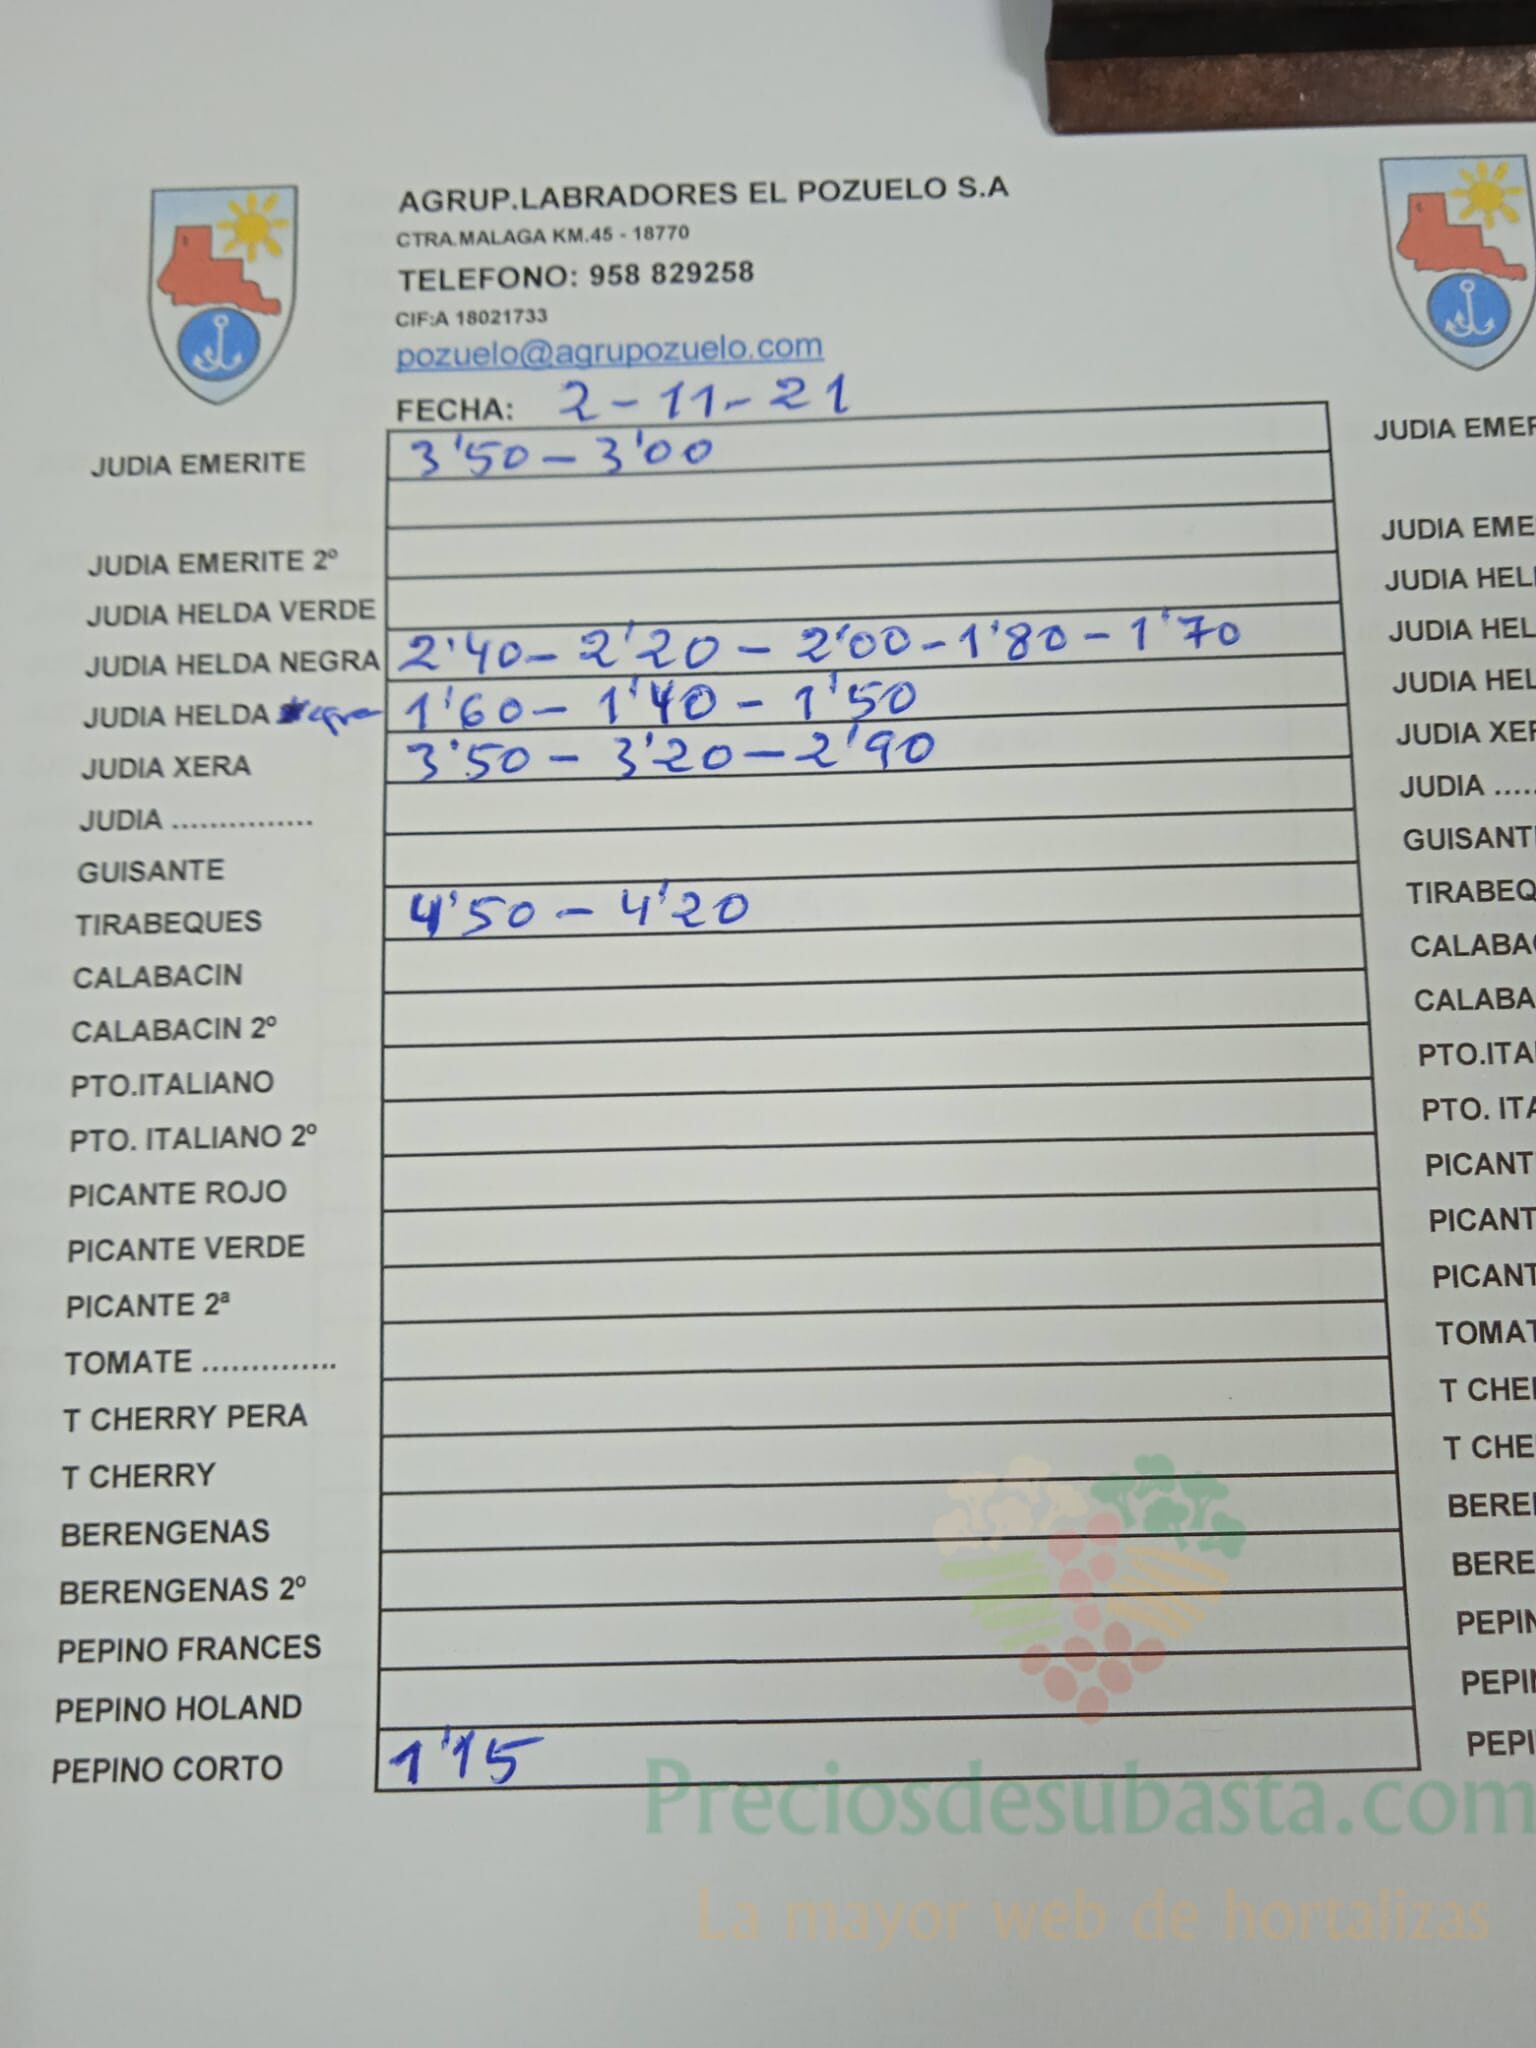 AGRUP.LABRADORES EL POZUELO S.A
CTRA.MALAGA KM.45 - 18770
TELEFONO: 958 829258
CIF:A 18021733
pozuelo@agrupozuelo.com
FECHA: 2-11-21
JUDIA EMERITE 3'50 - 3'00
JUDIA EMERITE 2º
JUDIA HELDA VERDE
JUDIA HELDA NEGRA 2'40 - 2'20 - 2'00 - 1'80 - 1'70
JUDIA HELDA 1'60 - 1'40 - 1'50
JUDIA XERA 3'50 - 3'20 - 2'90
JUDIA ...............
GUISANTE
TIRABEQUES 4'50 - 4'20
CALABACIN
CALABACIN 2º
PTO.ITALIANO
PTO. ITALIANO 2º
PICANTE ROJO
PICANTE VERDE
PICANTE 2ª
TOMATE ..............
T CHERRY PERA
T CHERRY
BERENGENAS
BERENGENAS 2º
PEPINO FRANCES
PEPINO HOLAND
PEPINO CORTO 1'15
JUDIA EMER
JUDIA EME
JUDIA HEL
JUDIA HEL
JUDIA HEL
JUDIA XER
JUDIA ....
GUISANT
TIRABEQ
CALABAC
CALABA
PTO.ITA
PTO. ITA
PICANT
PICANT
PICANT
TOMAT
T CHE
T CHE
BERE
BERE
PEPIN
PEPI
PEPI
Preciosdesubasta.com
La mayor web de hortalizas